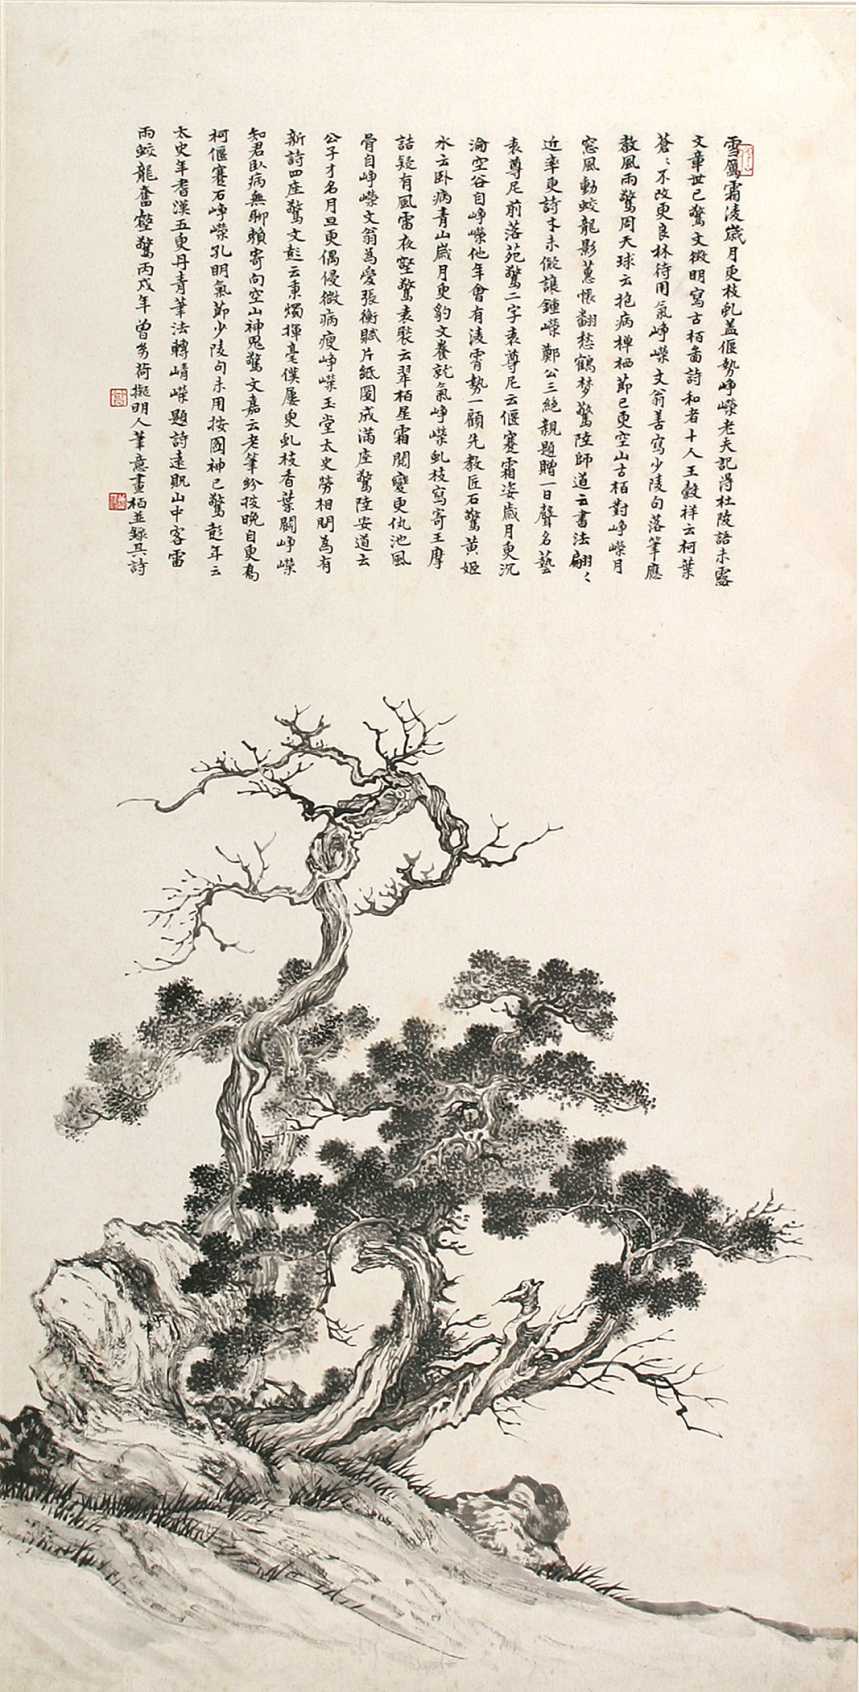 雪厲霜淩歲月更枝虬蓋偃勢崢嶸老夫記得杜陵語未露
文章世已驚文徵明寫古栢畣詩和者十人王穀祥云柯葉
蒼〻不改更良林待用氣崢嶸文翁善寫少陵句落筆應
教風雨驚周天球云抱病禪栖節已更空山古栢對崢嶸月
窓風動蛟龍影蕙悵翻愁鶴夢驚陸師道云書法翩〻
近率更詩才未儗讓鍾嶸鄭公三絶親題贈一日聲名藝
苑驚二字袁尊尼云偃蹇霜姿歲月更沉
淪空谷自崢嶸他年會有淩霄勢一顧先教匠石驚黃姬
水云卧病青山歲月更豹文養就氣崢嶸虬枝寫寄王摩
詰疑有風雷夜壑驚袁褧云翠栢星霜閱變更仇池風
骨自崢嶸文翁為愛張衡賦片紙圖成滿座驚陸安道云
公子才名月旦更偶侵微病瘦崢嶸玉堂太史勞相問為有
新詩四座驚文彭云東燭揮毫僕屢更虬枝香葉鬪崢嶸
知君卧病無聊賴寄向空山神鬼驚文嘉云老筆紛披晚自更喬
柯偃蹇石崢嶸孔明氣節少陵句未用按圖神已驚彭年云
太史年耆漢五更丹青筆法轉崝嶸題詩遠貺山中客雷
雨蛟龍奮壑驚丙戌年曾㓜荷擬明人筆意畫栢並錄其詩